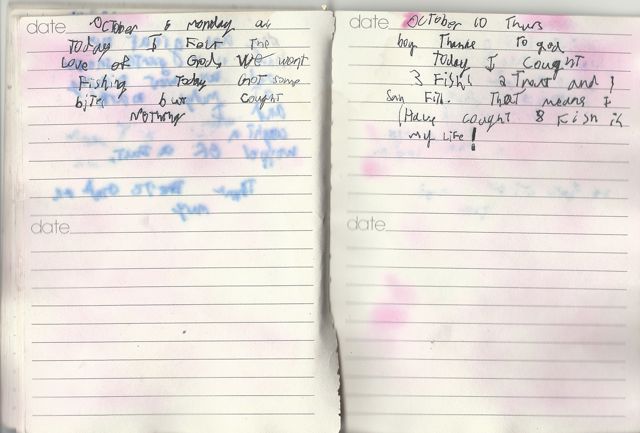 date October 6 monday
Today I Felt The
Love of God, We went
Fishing Today Got some
bites but cought
Nothing
date
date October 10 Thurs
boy Thanks To god
Today I cought
3 Fish! 2 Trout and 1
Sun Fih. That means I
Have cought 8 Fish in
my Life!
date